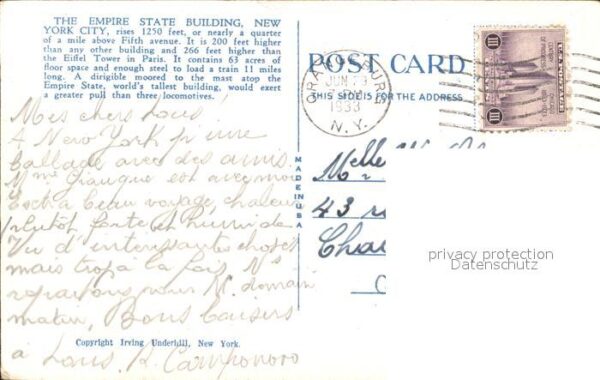 THE EMPIRE STATE BUILDING, NEW
YORK CITY, rises 1250 feet, or nearly a quarter
of a mile above Fifth avenue. It is 200 feet higher
than any other building and 266 feet higher than
the Eiffel Tower in Paris. It contains 63 acres of
floor space and enough steel to load a train 11 miles
long. A dirigible moored to the mast atop the
Empire State, world's tallest building, would exert
a greater pull than three locomotives.
Mes chers tous!
A New York
avec des amis.
Mme est avec moi
beau voyage, chaleur
plutôt forte et humide
Vu d'interessantes choses
mais trop à la fois. Ns
repartons pour M. demain
matin, Bons baisers
à tous. R. Camponovo
Copyright Irving Underhill, New York.
MADE IN USA
POST CARD
THIS SIDE IS FOR THE ADDRESS
JUN
1933
N. Y.
Mlle
43
privacy protection
Datenschutz